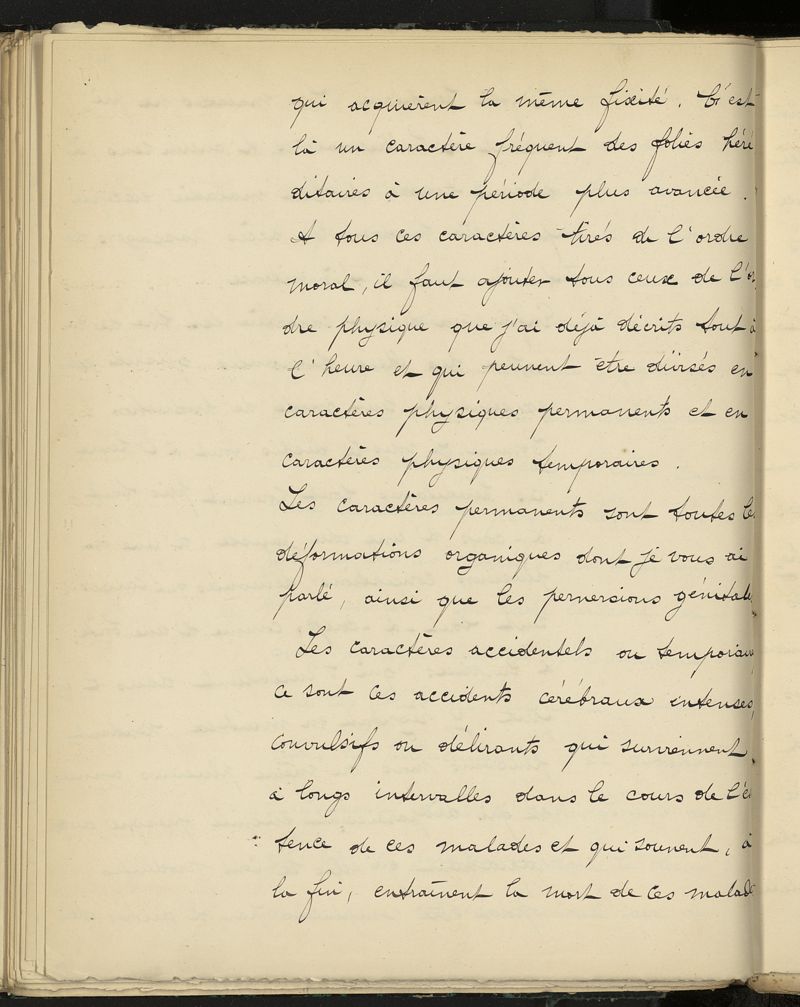 qui acquièrent la même fixité. C'est
là un caractère fréquent des folies héré
ditaires à une période plus avancée.
A tous ces caractères tirés de l'ordre
moral, il faut ajouter tous ceux de l'or
dre physique que j'ai déjà décrits tout à
l'heure et qui peuvent être divisés en
caractères physiques permanents et en
caractères physiques temporaires.
Les caractères permanents sont toutes les
déformations organiques dont je vous ai
parlé, ainsi que les perversions génitales
Les caractères accidentels ou temporaires
ce sont ces accidents cérébraux intenses,
convulsifs ou délirants qui surviennent
à longs intervalles dans le cours de l'é
tence de ces malades et qui souvent, à
la fin, entraînent la mort de ces malad